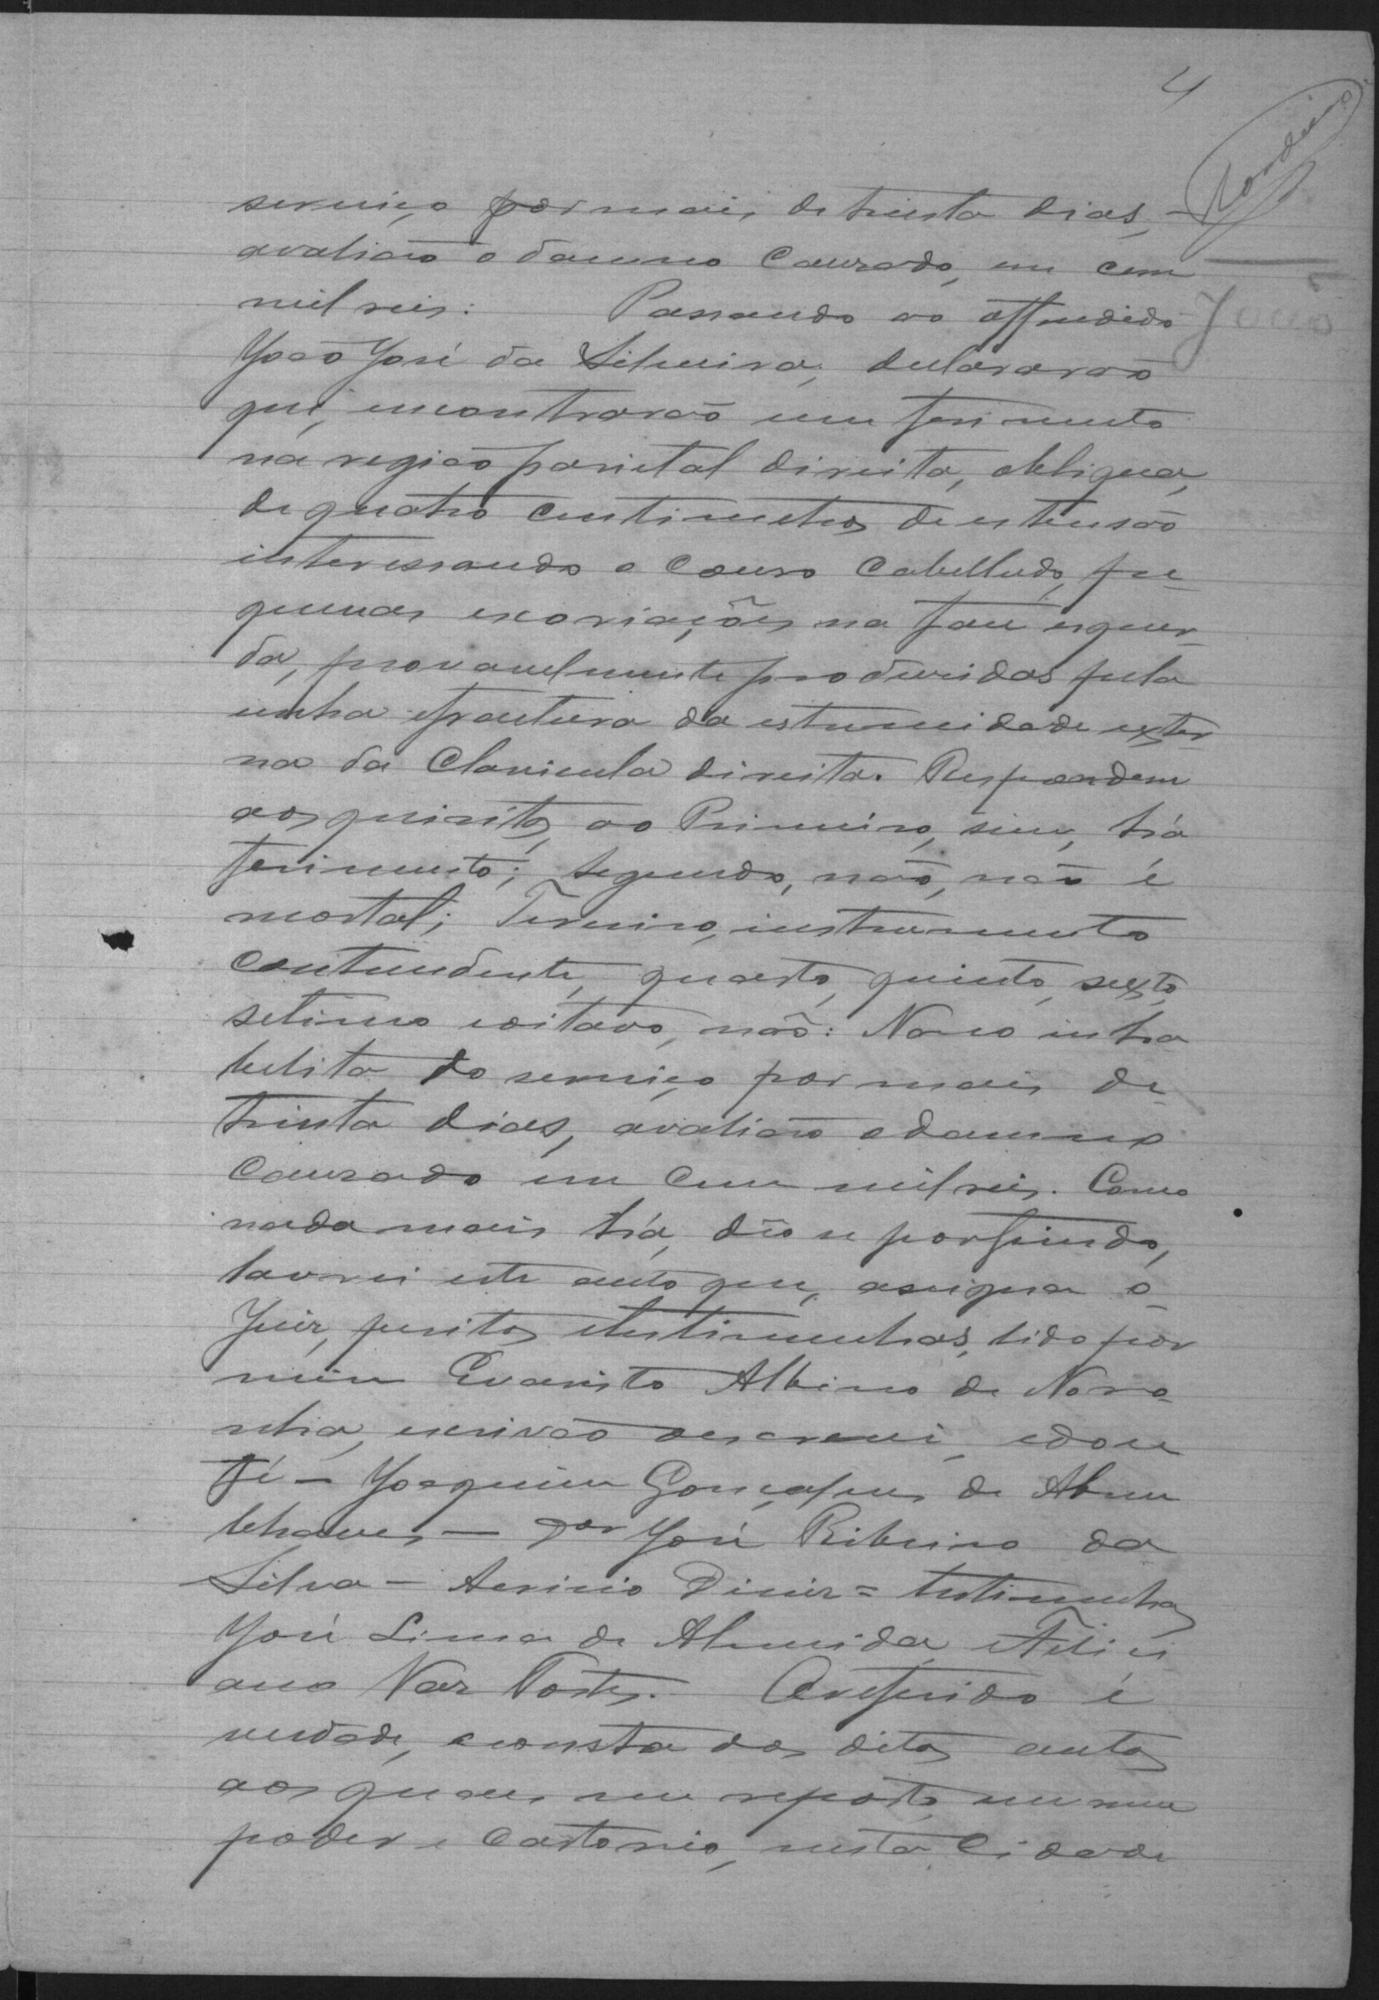 4
serviço por mais de trinta dias, -
avalião o damno causado, em cem
mil reis: Passando ao offendido
João
João José da Silveira, declararão
que, encontrarão um ferimento
na região parietal direita, obliqua,
de quatro centimetros de estensão
interessando o couro cabelludo, pe-
quenas excoriações na face esquer-
da, provavelmente produzidas pela
unha e fractura da estremidade exter
na da clavicula direita. Respondem
aos quisitos, ao Primeiro, sim, há
ferimento; segundo, não, não é
mortal; Terceiro, instrumento
contundente, quarto, quinto, sexto,
setimo e oitavo, não: Nono inha
belita do serviço por mais de
trinta dias, avalião o damno
causado em cem mil reis. Como
nada mais há, deo se por findo,
lavrei este auto que, assigna o
Juiz, peritos e testimunhas, lido por
mim Evaristo Albino de Noro-
nha, escrivão o escrevi, e dou
fé - Joaquim Gonçalves de Abreu
Chaves - Dor José Ribeiro da
Silva - Diniz = testimunhas
José Lima de Almeida e Felici
ano Vaz Tostes. O referido é
verdade, e consta dos ditos autos
aos quaes me reporto, em meu
poder e Cartorio, nesta Cidade